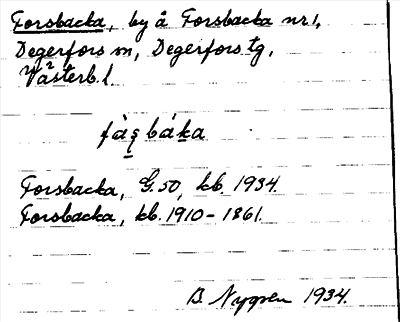 Forsbacka, by å Forsbacka nr 1,
Degerfors sn, Degerfors tg,
Västerb. l.
fàʂbáka
Forsbacka, G. 50, kb. 1934.
Forsbacka, kb. 1910-1861.
B. Nygren 1934.